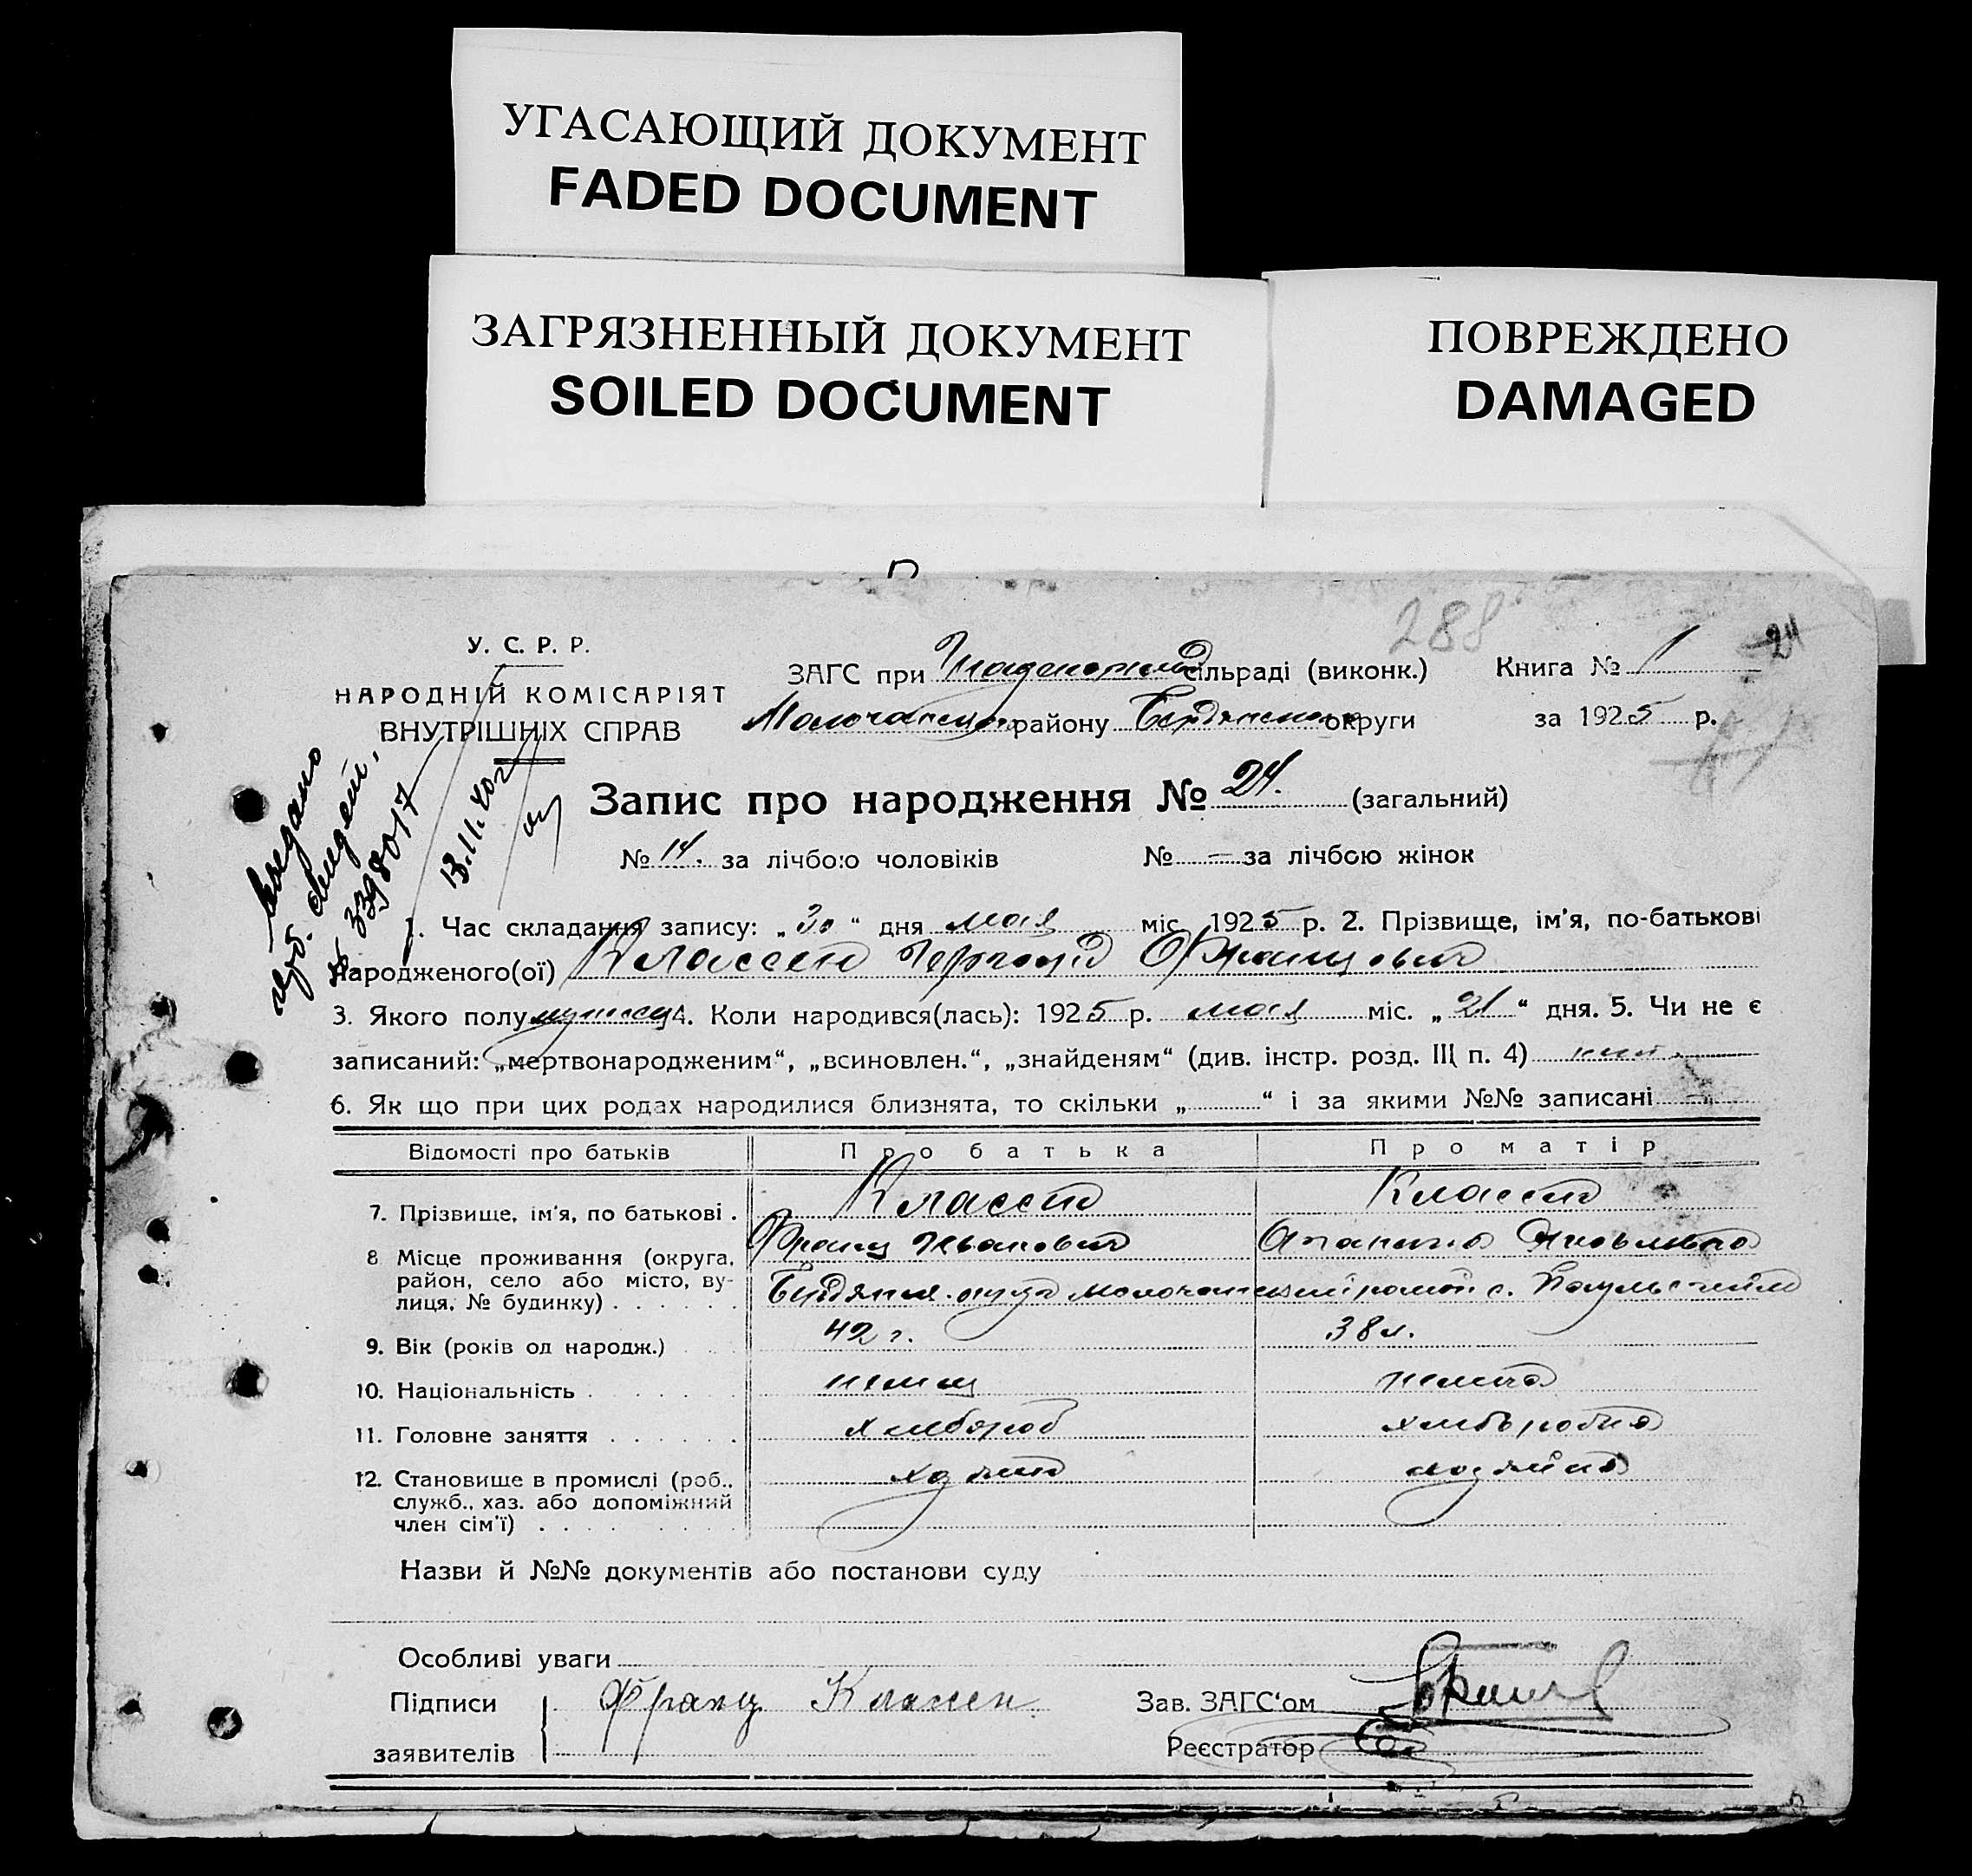 УГАСАЮЩИЙ ДОКУМЕНТ
FADED DOCUMENT
ЗАГРЯЗНЕННЫЙ ДОКУМЕНТ
SOILED DOCUMENT
ПОВРЕЖДЕНО
DAMAGED
288
24
У. С. Р. Р.
НАРОДНІЙ КОМІСАРІЯТ
ВНУТРІШНІХ СПРАВ
ЗАГС при сільраді (виконк.) Книга № 1
району округи за 1925 р.
13.11.40 г
3398017
Запис про народження № 24. (загальний)
№ 14. за лічбою чоловіків № — за лічбою жінок
1. Час складання запису: „30“ дня мая міс. 1925 р. 2. Прізвище, ім'я, по-батькові
народженого(ої) Классен Францович
3. Якого полу 4. Коли народився(лась): 1925 р. мая міс. „21“ дня. 5. Чи не є
записаний: „мертвонародженим“, „всиновлен.“, „знайденям“ (див. інстр. розд. III п. 4)
6. Як що при цих родах народилися близнята, то скільки „ “ і за якими №№ записані
Відомості про батьків Про батька Про матір
7. Прізвище, ім'я, по батькові . Классен Классен
Франц Иванович Яковлевна
8 Місце проживання (округа, район, село або місто, ву-
лиця, № будинку) . . . . . .
9. Вік (років од народж.) 42 г. 38 л.
10. Національність . немец немка
11. Головне заняття . . . . . . хлебороб
12. Становище в промислі (роб.. хозяин хозяйка
служб., хаз. або допоміжний
член сім'ї) . . . . . . . .
Назви й №№ документів або постанови суду
Особливі уваги
Підписи Франц Классен Зав. ЗАГС'ом
заявителів Реєстратор